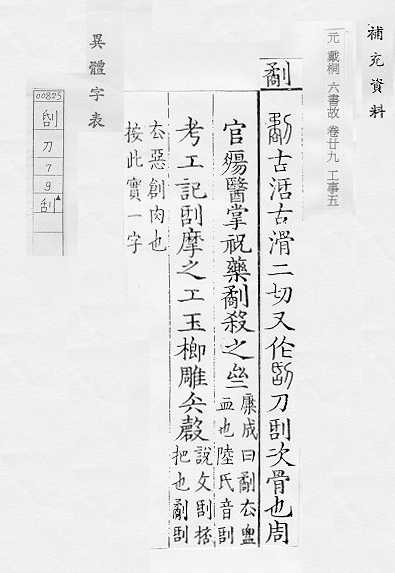 補充資料
元 戴桐 六書故 卷廿九 工事五
劀
劀古活古滑二切又作刀刮次骨也周
官瘍醫掌祝藥劀殺之亝
康成曰劀厺
血也陸氏音刮
考工記刮摩之工玉楖雕矢磬
說文刮掊
把也劀刮
厺惡創肉也
按此實一字
異體字表
00825
刀
7
9
刮